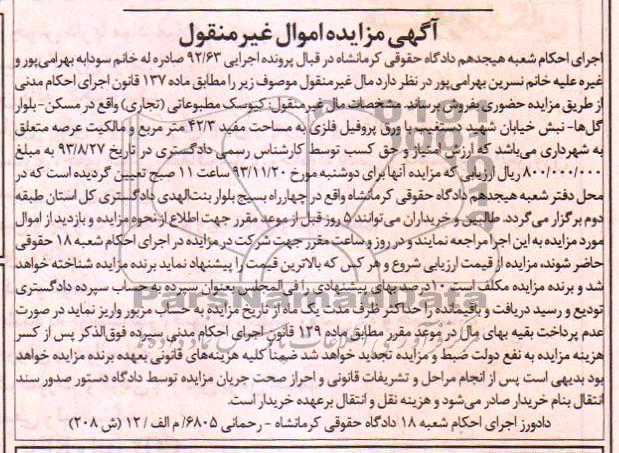 آگهی مزایده اموال غیر منقول
اجرای احکام شعبه هیجدهم دادگاه حقوقی کرمانشاه در قبال پرونده اجرایی ۹۲/۶۳ صادره له خانم سودابه بهرامی‌پور و
غیره علیه خانم نسرین بهرامی‌پور در نظر دارد مال غیر منقول موصوف زیر را مطابق ماده ۱۳۷ قانون اجرای احکام مدنی
از طریق مزایده حضوری بفروش برساند. مشخصات مال غیر منقول: کیوسک مطبوعاتی (تجاری) واقع در مسکن-بلوار
گل‌ها- نبش خیابان شهید دستغیب با ورق پروفیل فلزی به مساحت مفید ۴۲/۳ متر مربع و مالکیت عرصه متعلق
به شهرداری می‌باشد که ارزش امتیاز و حق کسب توسط کارشناس رسمی دادگستری در تاریخ ۹۳/۸/۲۷ به مبلغ
۸۰۰/۰۰۰/۰۰۰ ریال ارزیابی که مزایده آنها برای دوشنبه مورخ ۹۳/۱۱/۲۰ ساعت ۱۱ صبح تعیین گردیده است که در
محل دفتر شعبه هیجدهم دادگاه حقوقی کرمانشاه واقع در چهارراه بسیج بلوار بنت‌الهدی دادگستری کل استان طبقه
دوم برگزار می‌گردد. طالبین و خریداران می‌توانند ۵ روز قبل از موعد مقرر جهت اطلاع از نحوه مزایده و بازدید از اموال
مورد مزایده به این اجرا مراجعه نمایند و در روز و ساعت مقرر جهت شرکت در مزایده در اجرای احکام شعبه ۱۸ حقوقی
حاضر شوند، مزایده از قیمت ارزیابی شروع و هر کس که بالاترین قیمت را پیشنهاد نماید برنده مزایده شناخته خواهد
شد و برنده مزایده مکلف است ۱۰درصد بهای پیشنهادی را فی‌المجلس بعنوان سپرده به حساب سپرده دادگستری
تودیع و رسید دریافت و باقیمانده را حداکثر ظرف مدت یک ماه از تاریخ مزایده به حساب مزبور واریز نماید در صورت
عدم پرداخت بقیه بهای مال در موعد مقرر مطابق ماده ۱۲۹ قانون اجرای احکام مدنی سپرده فوق‌الذکر پس از کسر
هزینه مزایده به نفع دولت ضبط و مزایده تجدید خواهد شد ضمناً کلیه هزینه‌های قانونی بعهده برنده مزایده خواهد
بود بدیهی است پس از انجام مراحل و تشریفات قانونی و احراز صحت جریان مزایده توسط دادگاه دستور صدور سند
انتقال بنام خریدار صادر می‌شود و هزینه نقل و انتقال برعهده خریدار است.
دادورز اجرای احکام شعبه ۱۸ دادگاه حقوقی کرمانشاه - رحمانی ۶۸۰۵/ م الف / ۱۲ (ش ۲۰۸)
ParsNamadData